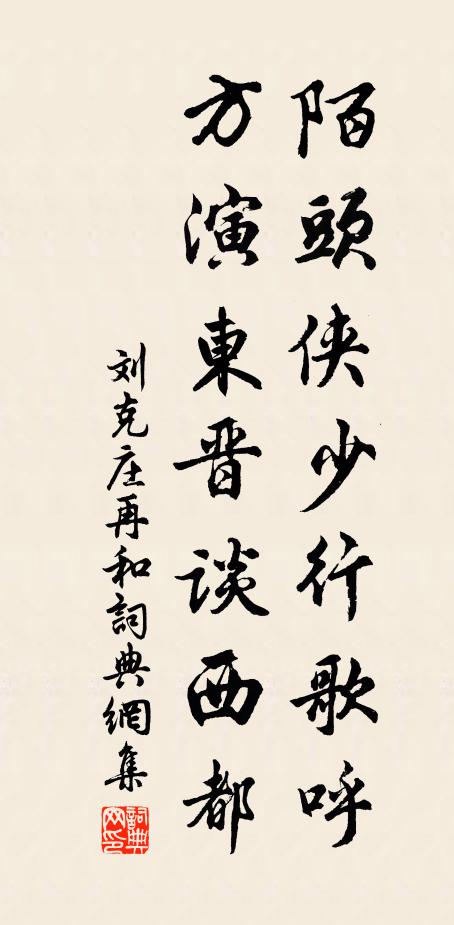 陌頭俠少行歌呼
方演東晉談西都
刘克庄再和詞典網集
詞典网印